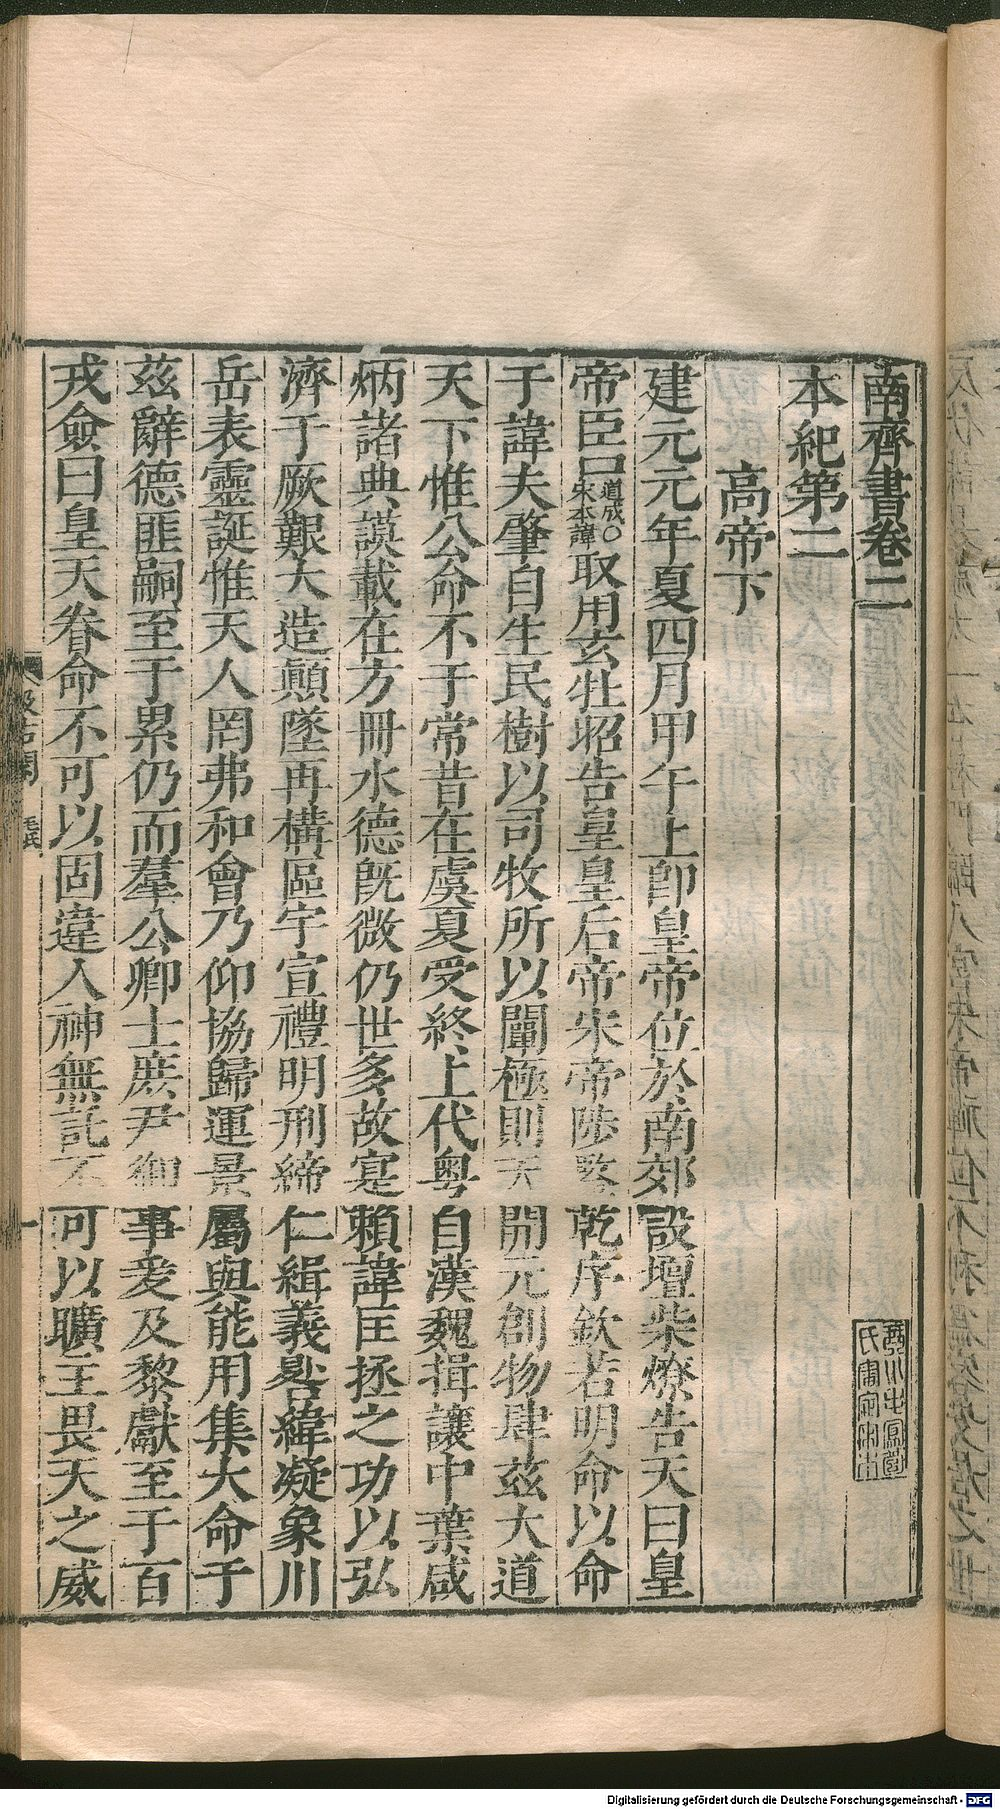 南齊書卷二
本紀第二
高帝下
建元元年夏四月甲午上卽皇帝位於南郊設壇柴燎告天曰皇
帝臣道成○宋本諱取用玄牡昭告皇皇后帝宋帝陟鑒乾序欽若明命以命
于諱夫肇自生民樹以司牧所以闡極則天開元創物肆茲大道
天下惟公命不于常昔在虞夏受終上代粤自漢魏揖讓中葉咸
炳諸典謨載在方冊水德旣微仍世多故寔賴諱匡拯之功以弘
濟于厥艱大造顛墜再構區宇宣禮明刑締仁緝義晷緯凝象川
岳表靈誕惟天人罔弗和會乃仰協歸運景屬與能用集大命于
茲辭德匪嗣至于累仍而羣公卿士庶尹御事爰及黎獻至于百
戎僉曰皇天眷命不可以固違人神無託不可以曠主畏天之威
汲古閣
毛氏
一
Digitalisierung gefördert durch die Deutsche Forschungsgemeinschaft - DFG